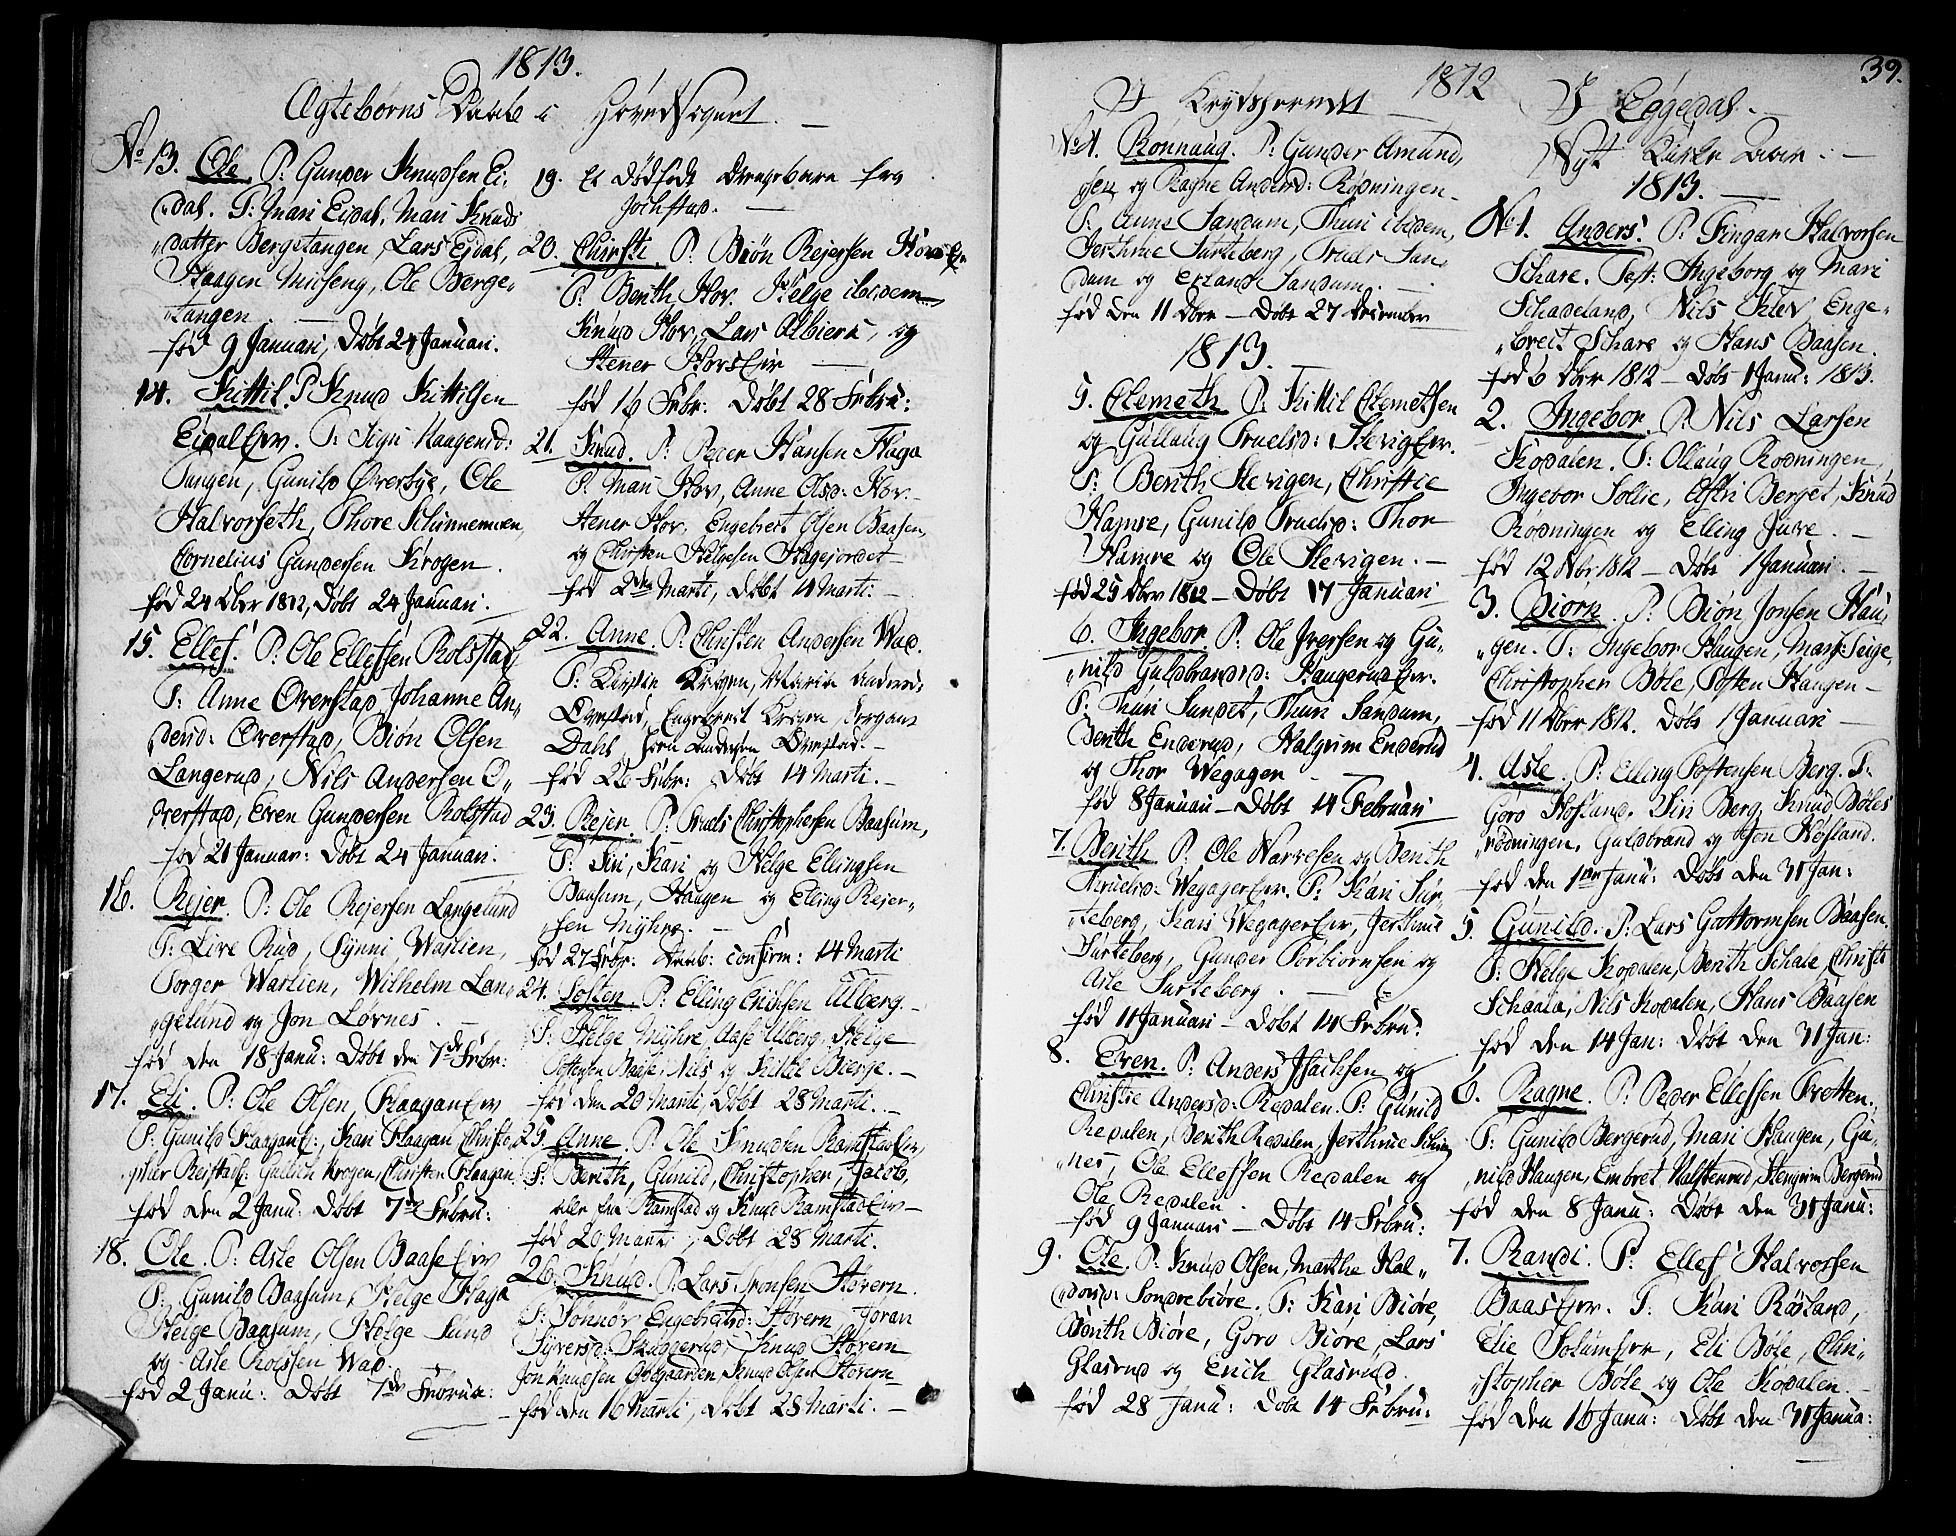 1813.
Ægtebørns Daab i HovedSognet.
No 13. Ole. P: Gunder Knudsen Ei-
dal. T: Mari Eidal, Mari Knuds
datter Bergetangen, Lars Ejdal,
Haagen Miiseng, Ole Berge-
tangen
fød 9 Januari, Døbt 24 Januari.
14. Kittil. P: Knud Kittilsen
Eidal Eier. T: Sigri Haagensd:
Tangen, Gunild Øverbye, Ole
Halvorseth, Thore
Cornelius Gundersen Krogen.
fød 24 Dbr 1812, Døbt 24 Januari.
15. Ellef. P: Ole Ellefsen Rolsstad
T: Anne Øverstad, Johanne An-
dersd: Øverstad, Biøn Olsen
Langerud, Nils Andersen Ø-
verstad, Even Gundersen Rolstad
fød 21 Januar: Døbt 24 Januari.
16. Rejer. P: Ole Rejersen Langelund
T: Live Rud, Synni Warlien,
Torger Warlien, Wilhelm Lan-
gelund og Jon Løvnes.
fød den 18 Janu: Døbt den 7de Febr:
17. Eli. P: Ole Olsen, Haagan Eier
T: Gunild Haagan E:, Kari Haagan, Christo-
pher Reistad, Gullich Krogen, Christen Haagan
fød den 2 Janu: Døbt 7de Febru:
18. Ole. P: Asle Olsen Baase Eier
T: Gunild Baasum, Helge Haga
Helge Baasum, Helge Lund
og Asle Rolssen Wad.
fød 2 Janu: Døbt 7de Februa:
19. Et Dødfødt Drengebarn fra
20. Christi. P: Biøn Rejersen Hov Eie
T: Berith Hov. Helge ibidem
Knud Hov, Lars Albieru, og
Stener Hovs Eier
fød 16 Febr: Døbt 28 Febru:
21. Knud. P: Peder Hansen Haga
T: Mari Hov, Anne Olsd: Hov
Stener Hov, Engebret Olsen Baasen,
og Christen Helgesen Hagejordet
fød 2den Marti, Døbt 14 Marti.
22. Anne. P: Christen Andersen Wad.
T: Kirstin Krogen, Maria Andersd:
Øverstad, Engebret Krogen, Jørgen
Dahl, Joen Andersen Øverstad.
fød 26 Febr: Døbt 14 Marti.
23. Rejer. P: Truels Christophersen Baasum,
T: Siri, Kari og Helge Ellingsen
Baasum, Haagen og Elling Rejer-
sen Myhre.
fød 27 Febr: Daab: confirm: 14 Marti
24. Tosten. P: Elling Erichsen Ulberg.
T: Helge Myhre, Aase Ulberg, Helge
Tostensen Baase, Nils og Kittil Bierge.
fød den 20 Marti, Døbt 28 Marti.
25. Anne. P: Ole Knudsen Ramstad Eier,
T: Berith, Gunild, Christopher, Jacob,
alle fra Ramstad og Knud Ramstad Eier
fød 20 Marti, Døbt 28 Marti.
26. Knud. P: Lars Tronsen Støvern.
T: Sønnøv Engebretsd: Støvern, Joran
Syversd: Skaggerud, Knud Støvern
Jon Knudsen Ødegaarden, Knud Olsen Støvern
fød den 16 Marti, Døbt 28 Marti.
39.
I Krydsherredt 1812
No 4. Ronnaug. P: Gunder Amund-
sen og Ragne Andersd: Rødningen.
T: Anne Sandum, Thuri ibidem,
Jerthrue Surteberg, Truels San-
dum og Erland Sandum.
fød den 11 Dber Døbt 27 December
1813.
5. Clemeth. P: Kittil Clemetsen
og Gullaug Truelsd: Slevig Eier.
T: Berith Slevigen, Christie
Hamre, Gunild Truelsd: Thor
Hamre og Ole Slevigen.
fød 25 Dber 1812 Døbt 17 Januari
6. Ingebor. P: Ole Iversen og Gu-
nild Guldbrandsd: Haugerud Eier.
T: Thuri Sundet, Thuri Sandum,
Berith Enderud, Halgrim Enderud
og Thor Wegager
fød 8 Januari Døbt 14 Februari
7. Berith. P: Ole Narvesen og Berith
Thruelsd: Wegager Eier. T: Kari Sur-
teberg, Kari Wegager Eier, Jerthrue
Surteberg, Gunder Torbiørnsen og
Asle Surteberg.
fød 11 Januari Døbt 14 Febru:
8. Even. P: Anders Isachsen og
Christie Andersd: Redalen. T: Gunild
Redalen, Berith Redalen, Jerthrue Schin-
nes, Ole Ellefsen Redalen og
Ole Redalen.
fød 9 Januari Døbt 14 Febru:
9. Ole. P: Knud Olsen, Marthe Hal-
dorsd: Søndrebiøre. T: Kari Biøre,
Berith Biøre, Goro Biøre, Lars
Glasrud og Erich Glasrud.
fød 28 Janu: Døbt 14 Febru:
I Eggedal.
Nytt Kirke Aar.
1813.
No 1. Anders. P: Fingar Halvorsen
Schare. Test: Ingeborg og Mari
Schadeland, Nils Klev, Enge-
breit Schare og Hans Baasen.
fød 6 Dber 1812 Døbt 1 Janu: 1813.
2. Ingebor. P: Nils Larsen
Kopalen. T: Ollaug Rodningen,
Ingebor Sollie, Astri Berget, Knud
Rødningen og Elling Juve.
fød 12 Nbr 1812 Døbt 1 Januari.
3. Biorn. P: Biøn Jonsen Hau-
gen. T: Ingebor Haugen, Mari Teige,
Christopher Bøle, Tosten Haugen
fød 11 Dber 1812. Døbt 1 Januari
4. Asle. P: Elling Tostensen Berg. T:
Goro Høsland, Siri Berg, Knud Bøles
rødningen, Guldbrand og Jon Høsland.
fød den 1ste Janu: Døbt den 31 Jan:
5. Gunild. P: Lars Guttormsen Baasen.
T: Helge Kopalen, Berith Schale, Christi
Schaala, Nils Kopalen, Hans Baasen
fød den 14 Jan: Døbt den 31 Jan:
6. Ragne. P: Peder Ellefsen Trotten.
T: Gunild Bergerud, Mari Haugen, Gu-
nild Haugen, Embret Halstenrud, Hengrim Bergerud
fød den 8 Janu: Døbt den 31 Janu:
7. Randi. P: Ellef Halvorsen
Baas Eier. T: Kari Røsland,
Elie Solum Eier, Eli Bøle, Chri-
stopher Bøle og Ole Kopalen.
fød den 16 Janu: Døbt den 31 Janua: